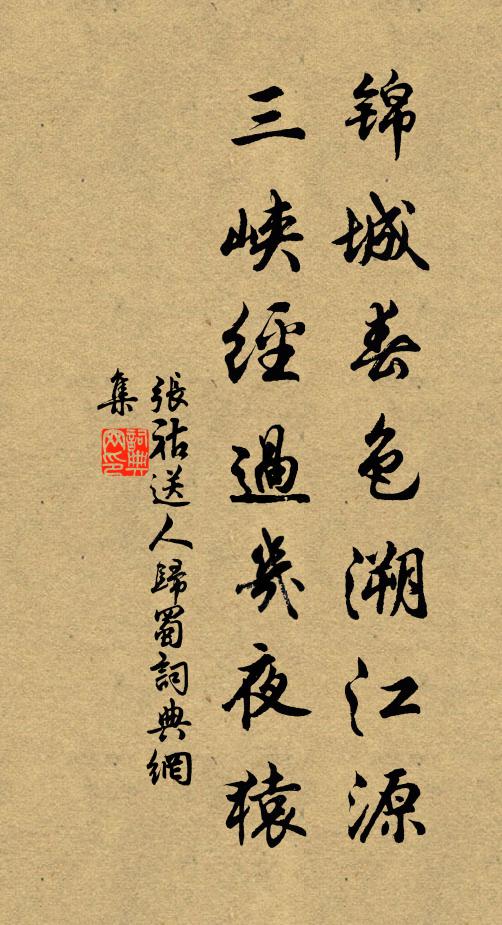 錦城春色溯江源
三峽經過幾夜猿
張祜送人歸蜀詞典網
集
詞典
网印